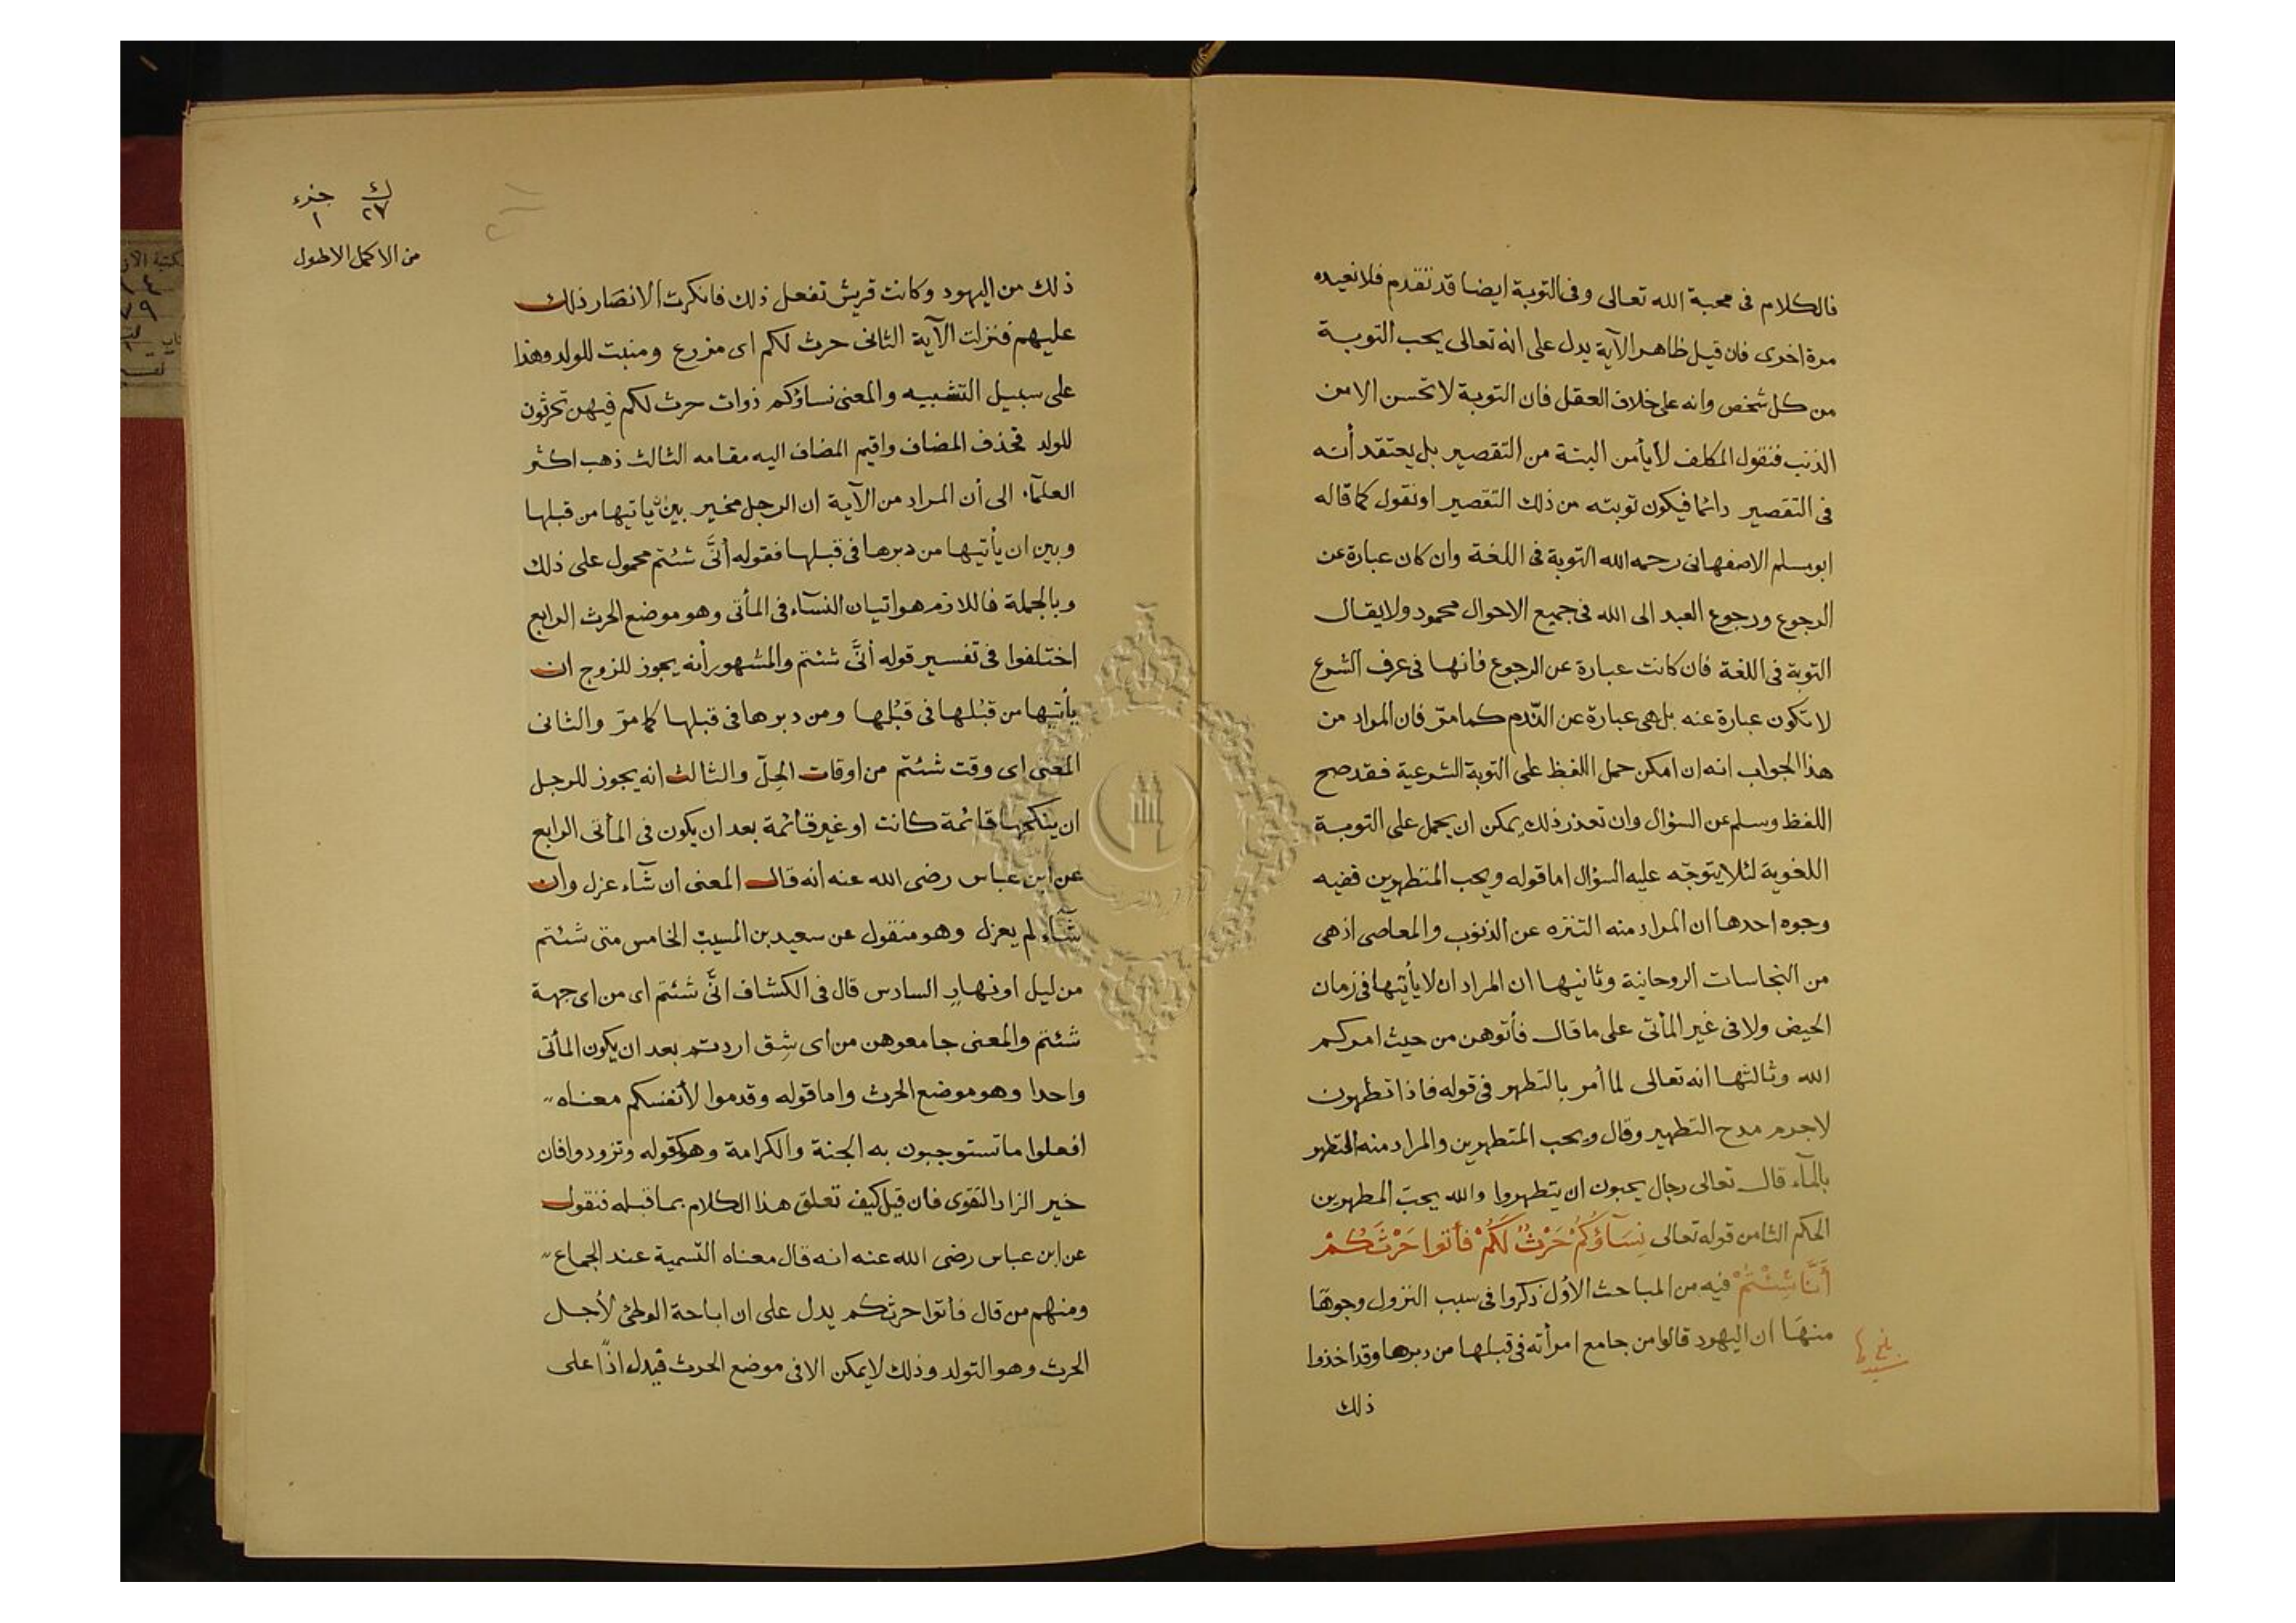 فالكلام فى محبة الله تعالى وفى التوبة ايضا قد تقدم فلا نعيده
مرة اخرى فان قيل ظاهر الآية يدل على انه تعالى يحب التوبة
من كل شخص وانه على خلاف العقل فان التوبة لا تحسن الا من
الذنب فنقول المكلف لا يأمن البتة من التقصير بل يعتقد أنه
فى التقصير دائما فيكون توبته من ذلك التقصير او نقول كما قاله
ابو مسلم الاصفهانى رحمه الله التوبة فى اللغة وان كان عبارة عن
الرجوع ورجوع العبد الى الله فى جميع الاحوال محمود ولا يقال
التوبة فى اللغة فان كانت عبارة عن الرجوع فانها فى عرف الشرع
لا تكون عبارة عنه بل هى عبارة عن النّدم كما مرّ فان المراد من
هذا الجواب انه ان امكن حمل اللفظ على التوبة الشرعية فقد صح
اللفظ وسلم عن السؤال وان تعذر ذلك يمكن ان يحمل على التوبة
اللغوية لئلا يتوجّه عليه السؤال اما قوله ويحب المتطهرين ففيه
وجوه احدها ان المراد منه التنزه عن الذنوب والمعاصى اذ هى
من النجاسات الروحانية وثانيها ان المراد ان لا يأتيها فى زمان
الحيض ولا فى غير المأتى على ما قال فأتوهن من حيث امركم
الله وثالثها انه تعالى لما أمر بالتطهر فى قوله فاذا تطهرن
لاجرم مدح التطهير وقال ويحب المتطهرين والمراد منه التطهر
بالمآء قال تعالى رجال يحبون ان يتطهروا والله يحبّ المطهرين
الحكم الثامن قوله تعالى نِسَآؤُكُمْ حَرْثٌ لَكُمْ فأتوا حَرْثَكُمْ
أَنَّا شِئْتُمْ فيه من المباحث الأول ذكروا فى سبب النزول وجوها
منها ان اليهود قالوا من جامع امرأته فى قبلها من دبرها وقد اخذوا
ذلك
ك جزء
٢٧ ١
من الاكمل الاطول
ذلك من اليهود وكانت قريش تفعل ذلك فانكرت الانصار ذلك
عليهم فنزلت الآية الثانى حرث لكم اى مزرع ومنبت للولد وهذا
على سبيل التشبيه والمعنى نساؤكم ذوات حرث لكم فيهن تحرثون
للولد فحذف المضاف واقيم المضاف اليه مقامه الثالث ذهب اكثر
العلمآء الى أن المراد من الآية ان الرجل مخير بين ان ياتيها من قبلها
وبين ان يأتيها من دبرها فى قبلها فقوله أنَّى شئتم محمول على ذلك
وبالجملة فاللازم هو اتيان النسآء فى المأتى وهو موضع الحرث الرابع
اختلفوا فى تفسير قوله أنَّى شئتم والمشهور أنه يجوز للزوج ان
يأتيها من قبُلها فى قبُلها ومن دبرها فى قبلها كما مرّ والثانى
المعنى اى وقت شئتم من اوقات الحِلّ والثالث انه يجوز للرجل
ان ينكحها قائمة كانت او غير قائمة بعد ان يكون فى المأتى الرابع
عن ابن عباس رضى الله عنه انه قال المعنى ان شآء عزل وان
شآء لم يعزل وهو منقول عن سعيد بن المسيب الخامس متى شئتم
من ليل او نهار السادس قال فى الكشاف انَّى شئتم اى من اى جهة
شئتم والمعنى جامعوهن من اى شِق اردتم بعد ان يكون المأتى
واحدا وهو موضع الحرث واما قوله وقدموا لأنفسكم معناه
افعلوا ما تستوجبون به الجنة والكرامة وهو كقوله وتزودوا فان
خير الزاد التقوى فان قيل كيف تعلق هذا الكلام بما قبله فنقول
عن ابن عباس رضى الله عنه انه قال معناه التسمية عند الجماع
ومنهم من قال فأتوا حرثكم يدل على ان اباحة الوطئ لأجل
الحرث وهو التولد وذلك لا يمكن الا فى موضع الحرث فيدل اذًا على